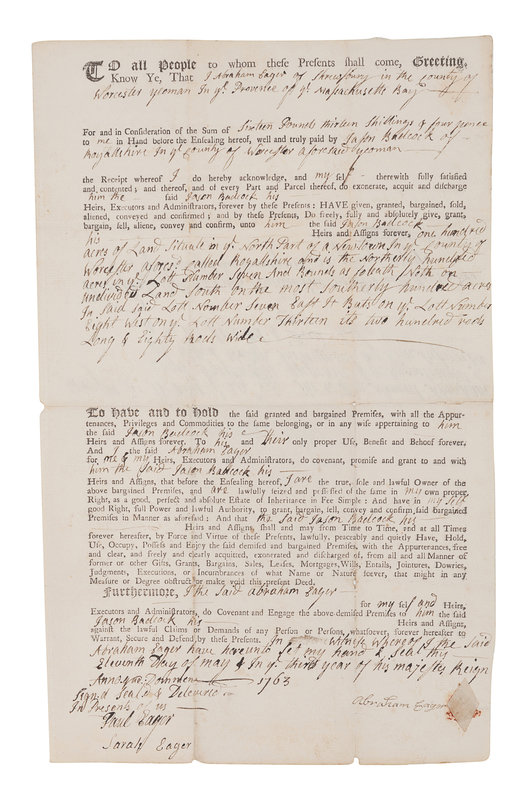 TO all People to whom these Presents shall come, Greeting,
Know Ye, That I Abraham Eager of Shrewsbury in the County of
Worcester yeoman In ye Province of ye Massachusetts Bay
For and in Consideration of the Sum of Sixteen Pounds thirteen Shillings & four pence
to me in Hand before the Ensealing hereof, well and truly paid by Jason Badcock of
Royallshire In ye County of Worcester aforesaid yeoman
the Receipt whereof I do hereby acknowledge, and my self therewith fully satisfied
and contented; and thereof, and of every Part and Parcel thereof, do exonerate, acquit and discharge
him the said Jason Badcock his
Heirs, Executors and Administrators, forever by these Presents: HAVE given, granted, bargained, sold,
aliened, conveyed and confirmed; and by these Presents, Do freely, fully and absolutely give, grant,
bargain, sell, aliene, convey and confirm, unto him the said Jason Badcock
his Heirs and Assigns forever, one hundred
acres of Land Situate in ye North Part of a New Town In ye County of
Worcester aforesd called Royallshire and is the Northerly hundred
acres in ye Lott Number Seven And Bounds as foloweth North on
undivided Land South on the most Southerly hundred acres
In said Lott Number Seven East It Butts on ye Lott Number
Eight West on ye Lott Number Thirteen its two hundred rods
Long & Eighty Rods wide
To Have and to Hold the said granted and bargained Premises, with all the Appur-
tenances, Privileges and Commodities to the same belonging, or in any wise appertaining to him
the said Jason Badcock his
Heirs and Assigns forever. To his and Their only proper Use, Benefit and Behoof forever,
And I the said Abraham Eager
for me & my Heirs, Executors and Administrators, do covenant, promise and grant to and with
him the said Jason Badcock his
Heirs and Assigns, that before the Ensealing hereof, I are the true, sole and lawful Owner of the
above bargained Premises, and are lawfully seized and possessed of the same in my own proper
Right, as a good, perfect and absolute Estate of Inheritance in Fee Simple: And have in my self
good Right, full Power and lawful Authority, to grant, bargain, sell, convey and confirm, said bargained
Premises in Manner as aforesaid: And that the said Jason Badcock his
Heirs and Assigns, shall and may from Time to Time, and at all Times
forever hereafter, by Force and Virtue of these Presents, lawfully, peaceably and quietly Have, Hold,
Use, Occupy, Possess and Enjoy the said demised and bargained Premises, with the Appurtenances, free
and clear, and freely and clearly acquitted, exonerated and discharged of, from all and all Manner of
former or other Gifts, Grants, Bargains, Sales, Leases, Mortgages, Wills, Entails, Jointures, Dowries,
Judgments, Executions, or Incumbrances of what Name or Nature soever, that might in any
Measure or Degree obstruct or make void this present Deed.
Furthermore, I the said Abraham Eager
for my self and Heirs,
Executors and Administrators, do Covenant and Engage the above demised Premises to him the said
Jason Badcock his Heirs and Assigns,
against the lawful Claims or Demands of any Person or Persons, whatsoever, forever hereafter to
Warrant, Secure and Defend, by these Presents. In Witness whereof I the Said
Abraham Eager have hereunto set my hand & seal this
Eleventh Day of may & In ye third year of his majestes Reign
1763
Signd Sealed & Delevured
In Presents of us
Paul Eager
Sarah Eager
Abraham Eager